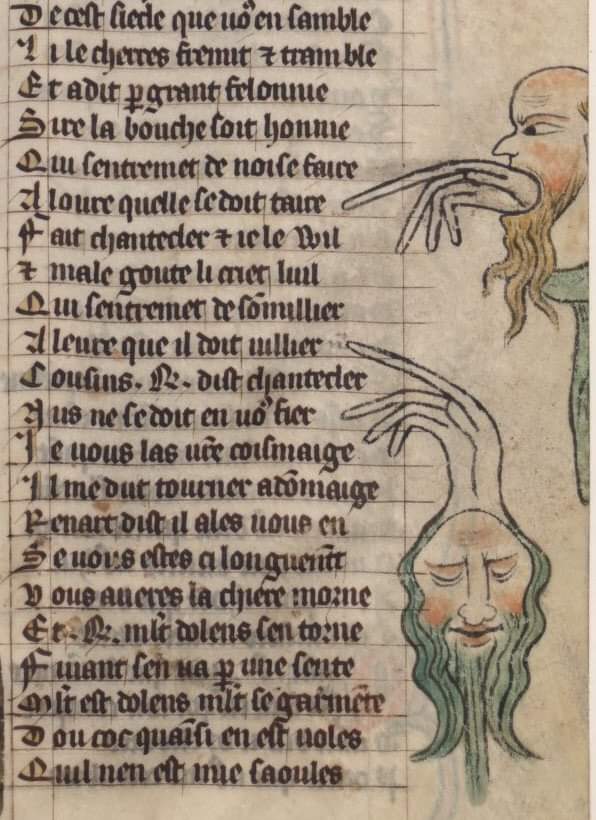 De cest siecle que uo᷒ en samble
Li lecherres fremit ⁊ tramble
Et a dit ꝑ grant felonnie
Sire la bouche soit honnie
Qui sentremet de noise faire
A loure quelle se doit taire
Fait chantecler ⁊ ie le Wil
⁊ male goute li criet luil
Qui sentremet de so̅millier
A leure que il doit uillier
Cousins .R. dist chantecler
Nus ne se doit en uo᷒ fier
Je uous las ur̅e cosinaige
Il me dut tourner a do̅maige
Renart dist il ales uous en
Se vous estes ci longuem̅t
Vous aueres la chiere morne
Et .R. ml̅t dolens sen torne
Fuiant sen ua ꝑ une sente
Ml̅t est dolens ml̅t se garmente
Dou coc quainsi en est uoles
Quil nen est mie saoules